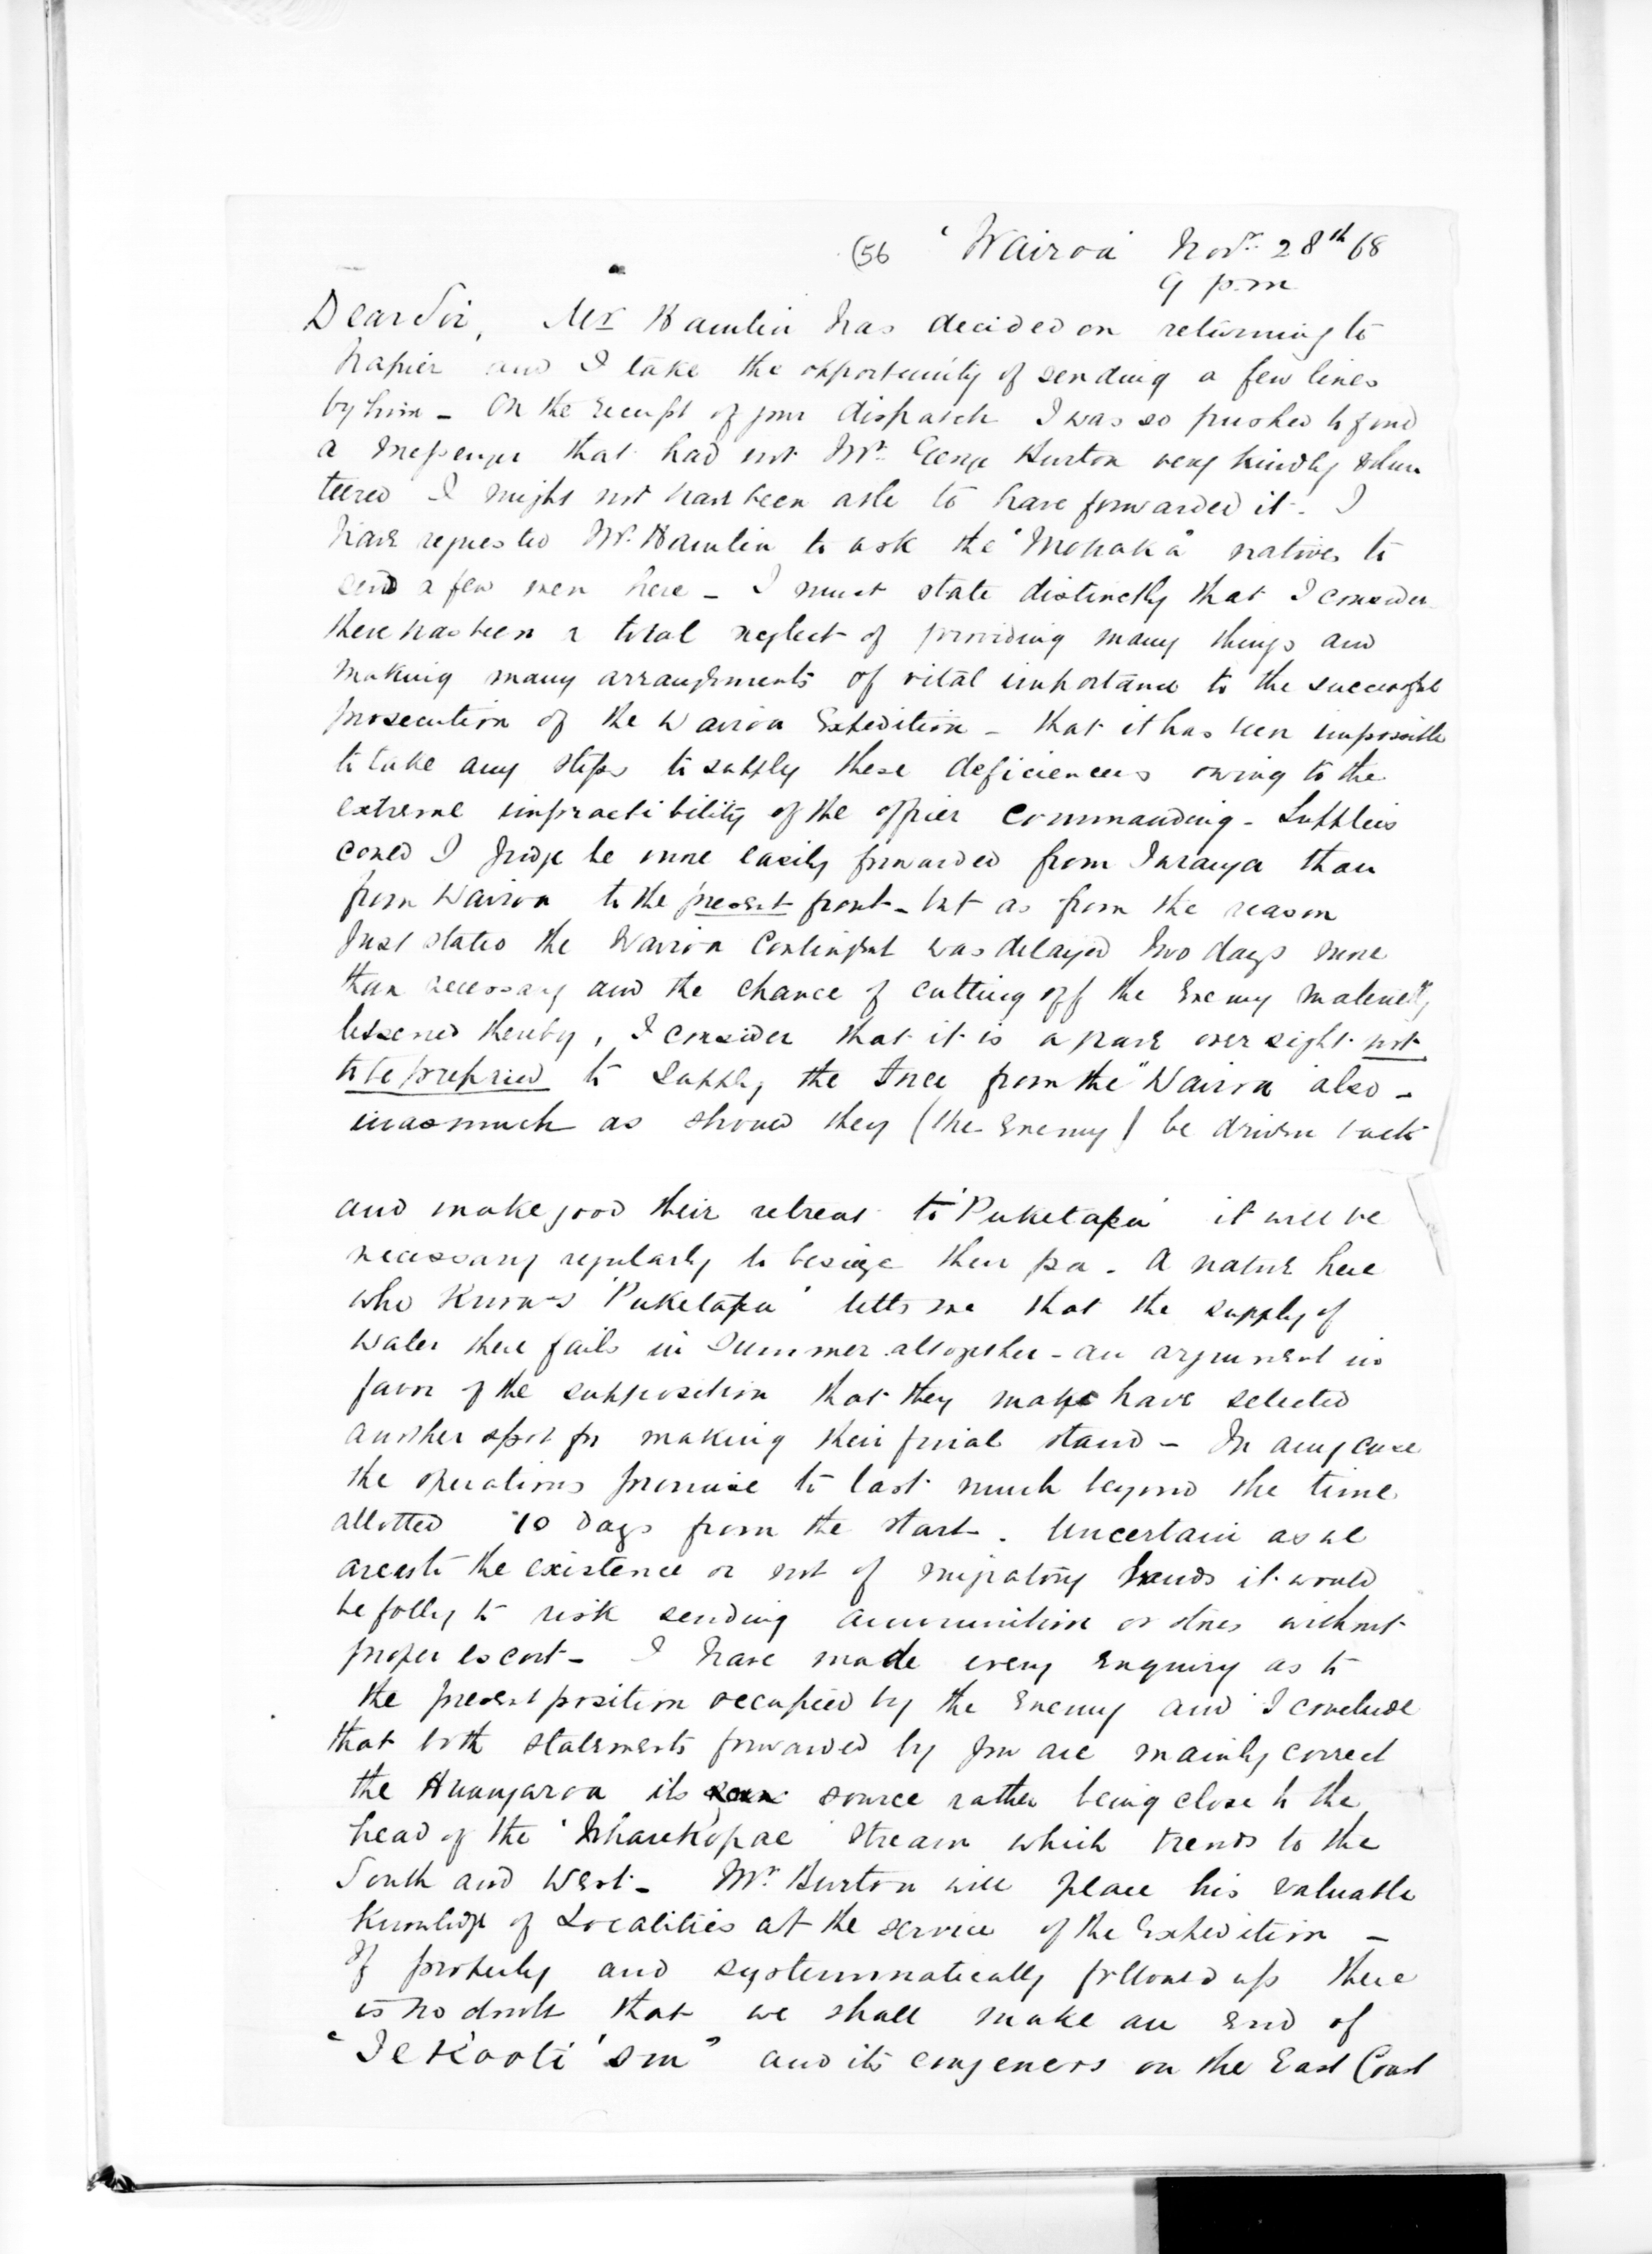 (56 'Wairoa' Novr. 28th 68
9 p.m
Dear Sir, Mr Hamlin has decided on returning to
Napier and I take the opportunity of sending a few lines
by him - On the receipt of your dispatch I was so pushed to find
a Messenger that had not Mr. George Burton very kindly volun
teered I might not have been able to have forwarded it. I
have requested Mr. Hamlin to ask the "Mohaka" natives to
send a few men here - I must state distinctly that I consider
there has been a total neglect of providing many things and
making many arrangements of vital importance to the successful
prosecution of the Wairoa Expedition - that it has been impossible
to take any steps to supply these deficiencies owing to the
extreme impractibility of the officer Commanding - Supplies
could I judge be more easily forwarded from Turanga than
from Wairoa to the present front - but as from the reason
Just stated the Wairoa Contingent was delayed two days more
than necessary and the chance of cutting off the Enemy materially
lessened thereby, I consider that it is a grave oversight not
to be prepared to supply the Force from the "Wairoa" also -
inasmuch as should they (the Enemy) be driven back
and make good their retreat to 'Puketapu' it will be
necessary regularly to besiege their pa - A native here
who Knows 'Puketapu' tells me that the supply of
Water there fails in Summer altogether - an argument in
favor of the supposition that they may have selected
another spot for making their final stand - In any case
the operations promise to last much beyond the time
allotted 10 Days from the start - Uncertain as we
are as to the existence or not of migratory bands it would
be folly to risk sending ammunition or stores without
proper escort - I have made every Enquiry as to
the present position occupied by the Enemy and I conclude
that both statements forwarded by you are mainly correct
the Huangaroa its source rather being close to the
head of the 'Wharekopae' Stream which trends to the
South and West - Mr. Burton will place his valuable
Knowledge of Localities at the service of the Expedition -
If properly and systemmatically followed up there
is no doubt that we shall make an End of
"Te Kooti'sm" and its congeners on the East Coast